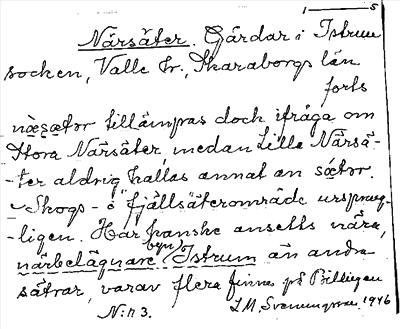 1———5
Närsäter. Gårdar i Istrum
socken, Valle hr., Skaraborgs län
forts
næsætər tillämpas doch ifråga om
Stora Närsäter, medan Lille Närsä-
-ter aldrig kallas annat än sætər.
Skogs- o fjällsäterområde ursprung-
-ligen. Har kanske ansetts nära,
närbelägnare (byn) Istrum än andra
sätrar, varav flera finnas på Billingen
N:r 3.
L M Svenungsson 1946